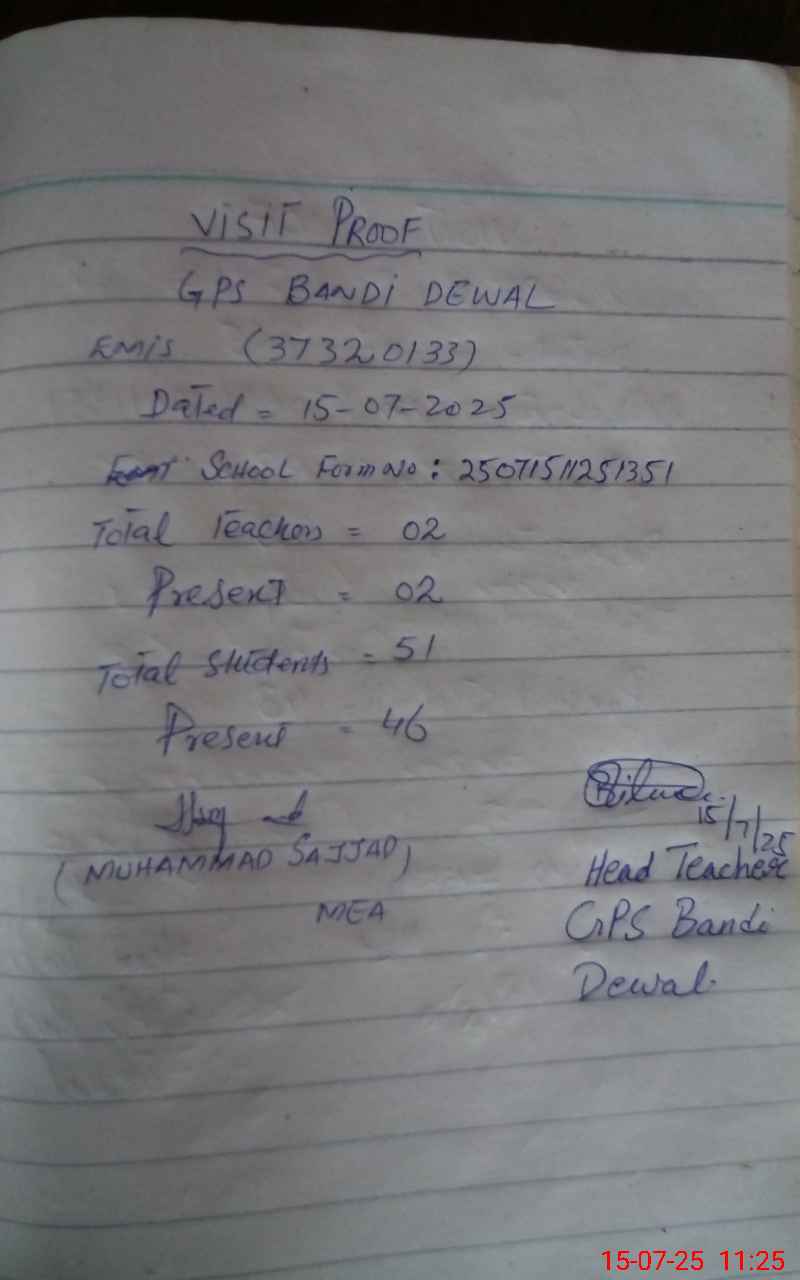 VISIT PROOF
GPS BANDI DEWAL
EMIS (37320133)
Dated = 15-07-2025
School Form No : 25071511251351
Total Teachers = 02
Present = 02
Total Students = 51
Present = 46
15/7/25
(MUHAMMAD SAJJAD)
MEA
Head Teacher
GPS Bandi
Dewal.
15-07-25 11:25